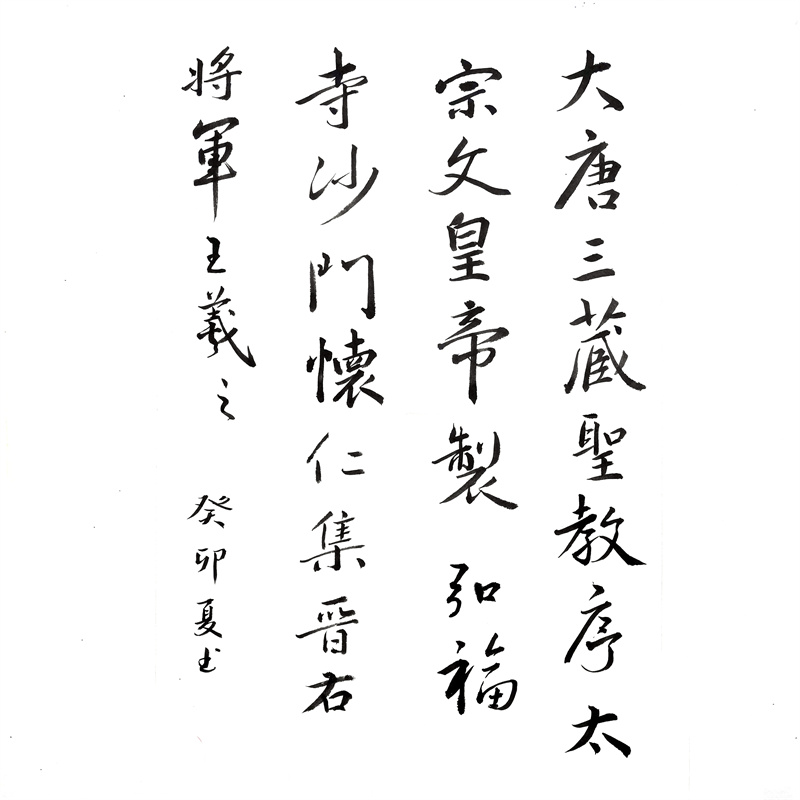 大唐三藏聖教序太
宗文皇帝製 弘福
寺沙門懷仁集晉右
將軍王羲之 癸卯夏书